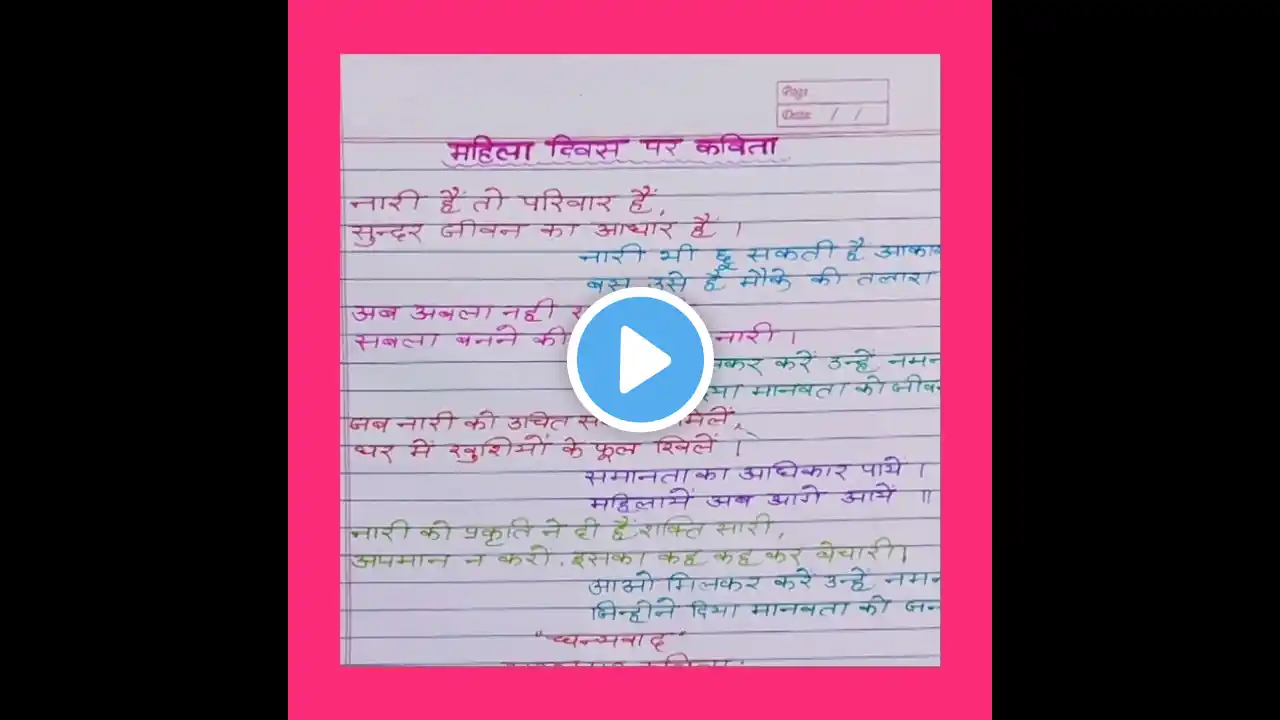 Page
Date / /
महिला दिवस पर कविता
नारी हैं तो परिवार हैं,
सुन्दर जीवन का आधार हैं ।
नारी भी छू सकती है
बस उसे हैं मौके की तलाश
अब अबला नही
सबला बनने की नारी ।
करें उन्हें
मानवता को
जब नारी को उचित मिलें,
घर में खुशियों के फूल खिलें ।
समानता का अधिकार पाये ।
महिलायें अब आगे आयें ॥
नारी को प्रकृति ने दी हैं शक्ति सारी,
अपमान न करो, इसका कह कह कर बेचारी।
आओ मिलकर करें उन्हें
जिन्होंने दिया मानवता को
"धन्यवाद"